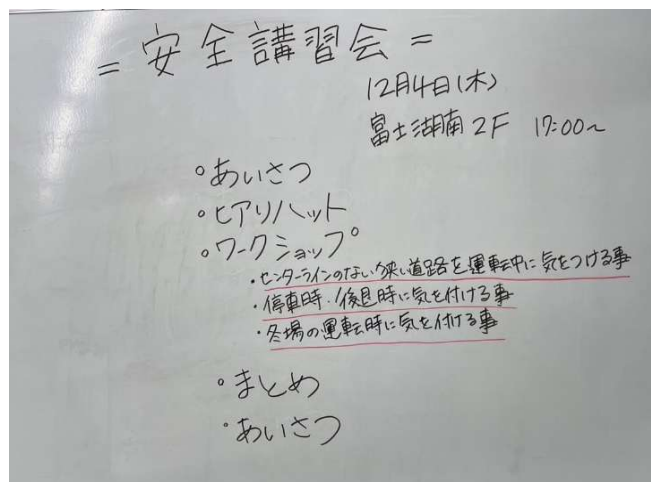 = 安全講習会 =
12月4日(木)
富士湖南 2F 17:00~
○あいさつ
○ヒアリハット
○ワークショップ
・センターラインのない狭い道路を運転中に気をつける事
・停車時・後退時に気を付ける事
・冬場の運転時に気を付ける事
○まとめ
○あいさつ